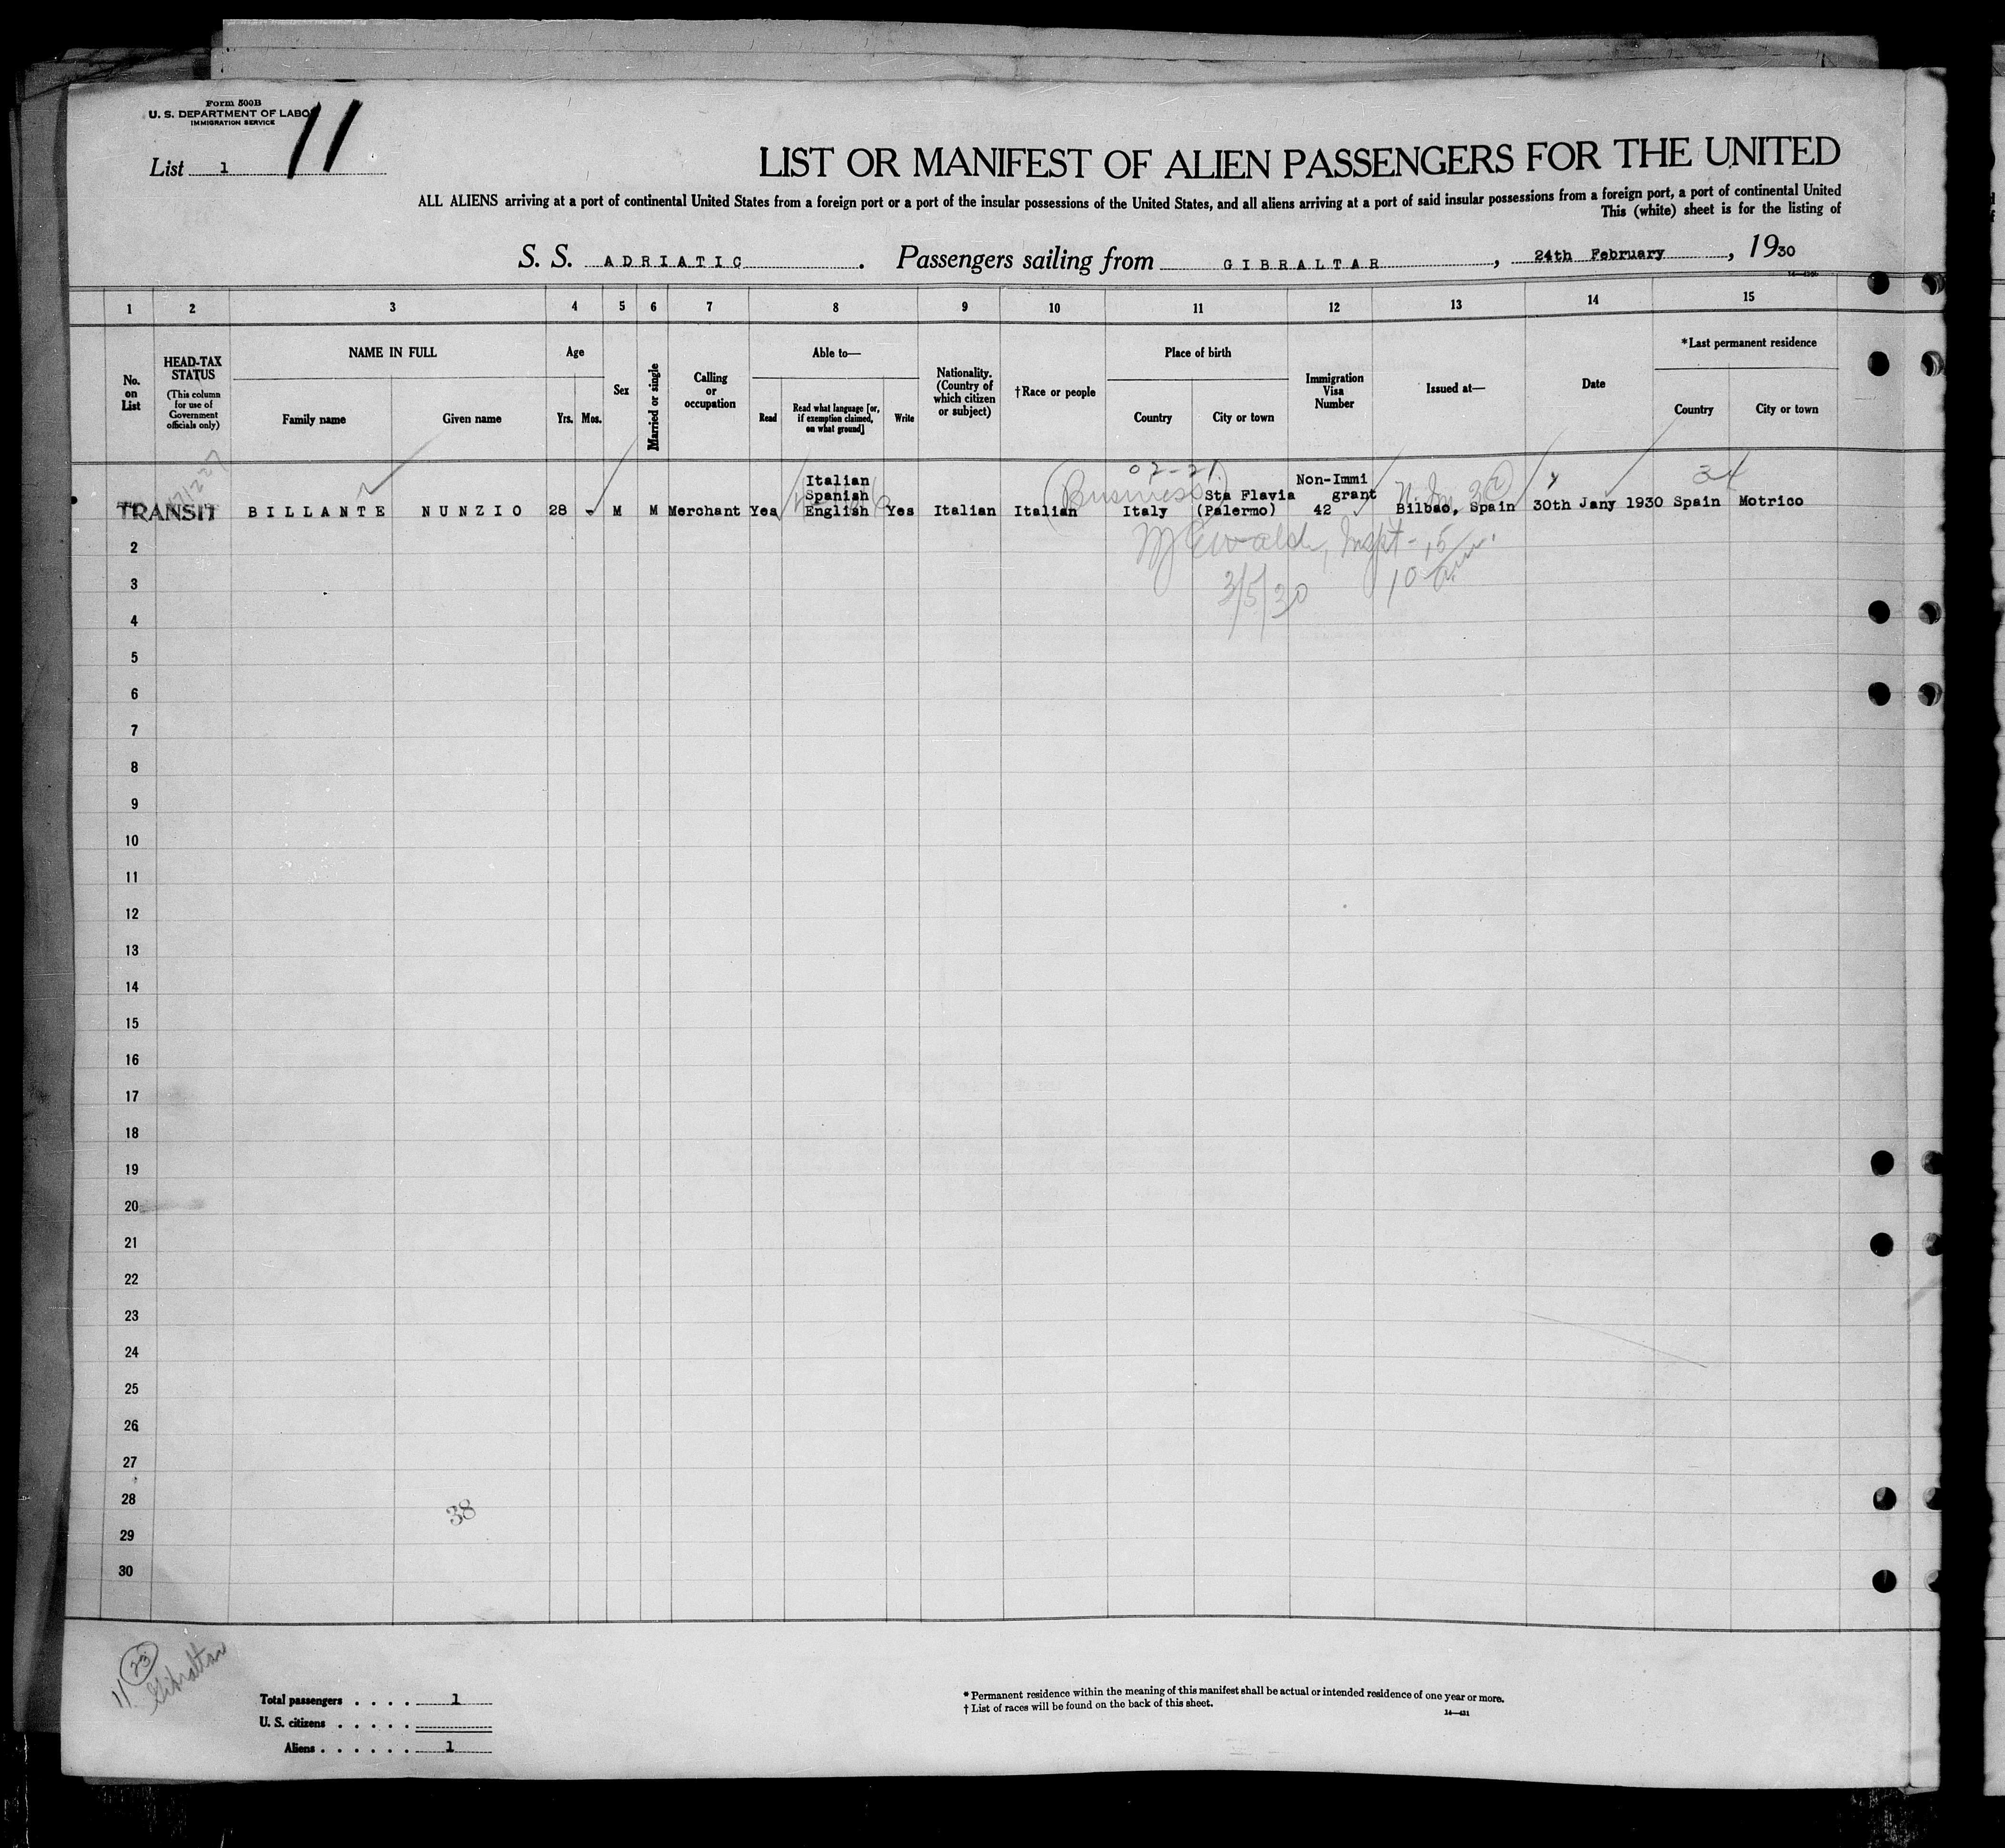 Form 500B
U. S. DEPARTMENT OF LABOR
IMMIGRATION SERVICE
11
List 1
LIST OR MANIFEST OF ALIEN PASSENGERS FOR THE UNITED
ALL ALIENS arriving at a port of continental United States from a foreign port or a port of the insular possessions of the United States, and all aliens arriving at a port of said insular possessions from a foreign port, a port of continental United
This (white) sheet is for the listing of
S. S. ADRIATIC . Passengers sailing from GIBRALTAR , 24th February , 1930
1 2 3 4 5 6 7 8 9 10 11 12 13 14 15
No. on List
HEAD-TAX STATUS
(This column for use of Government officials only)
NAME IN FULL
Family name Given name
Age
Yrs. Mos.
Sex
Married or single
Calling or occupation
Able to—
Read
Read what language [or, if exemption claimed, on what ground]
Write
Nationality. (Country of which citizen or subject)
†Race or people
Place of birth
Country City or town
Immigration Visa Number
Issued at—
Date
*Last permanent residence
Country City or town
02-21
34
(Business)
TRANSIT BILLANTE NUNZIO 28 - M M Merchant Yes Italian Spanish English Yes Italian Italian Italy Sta Flavia (Palermo) Non-Immi grant 42 Bilbao, Spain 30th Jany 1930 Spain Motrico
Ewald, Inspt-
3/5/30
2
3
4
5
6
7
8
9
10
11
12
13
14
15
16
17
18
19
20
21
22
23
24
25
26
27
28
29
30
38
11 23
Gibraltar
Total passengers . . . . 1
U. S. citizens . . . . .
Aliens . . . . . . 1
* Permanent residence within the meaning of this manifest shall be actual or intended residence of one year or more.
† List of races will be found on the back of this sheet.
14—431